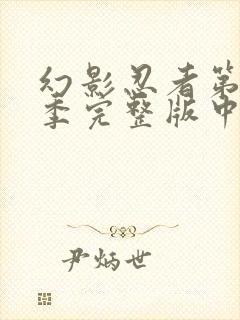 幻影忍者第
季完整版中
尹炳世